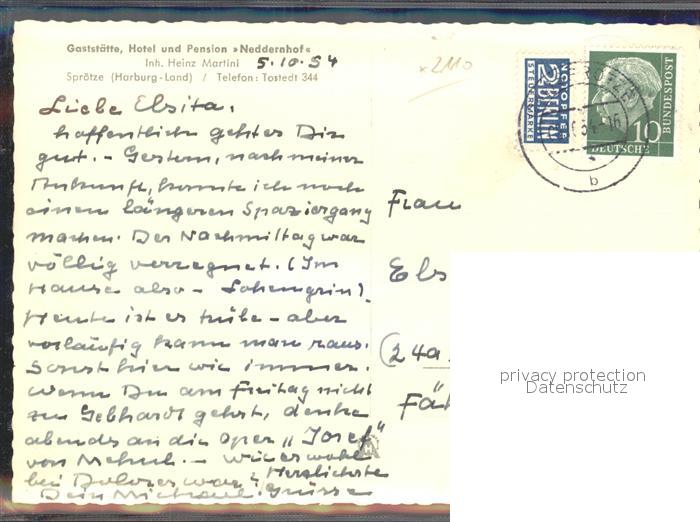 Gaststätte, Hotel und Pension »Neddernhof«
Inh. Heinz Martini 5.10.54
Sprötze (Harburg-Land) / Telefon: Tostedt 344
Liebe Elsita,
hoffentlich geht es Dir
gut. - Gestern, nach meiner
Ankunft, konnte ich noch
einen längeren Spaziergang
machen. Der Nachmittag war
völlig verregnet. (Im
Hause also - Lohengrin).
Heute ist es trübe - aber
vorläufig kann man raus.
Sonst hier wie immer.
Wenn Du am Freitag nicht
zu Gebhardt gehst, denke
abends an die Oper „Josef"
von Mehul. - Wie es wohl
bei Dolores war? Herzlichste
Dein Michael. Grüsse
x2110
NOTOPFER
2 BERLIN
STEUERMARKE
10
DEUTSCHE
BUNDESPOST
b
Frau
Els
(24a
Fä
privacy protection
Datenschutz